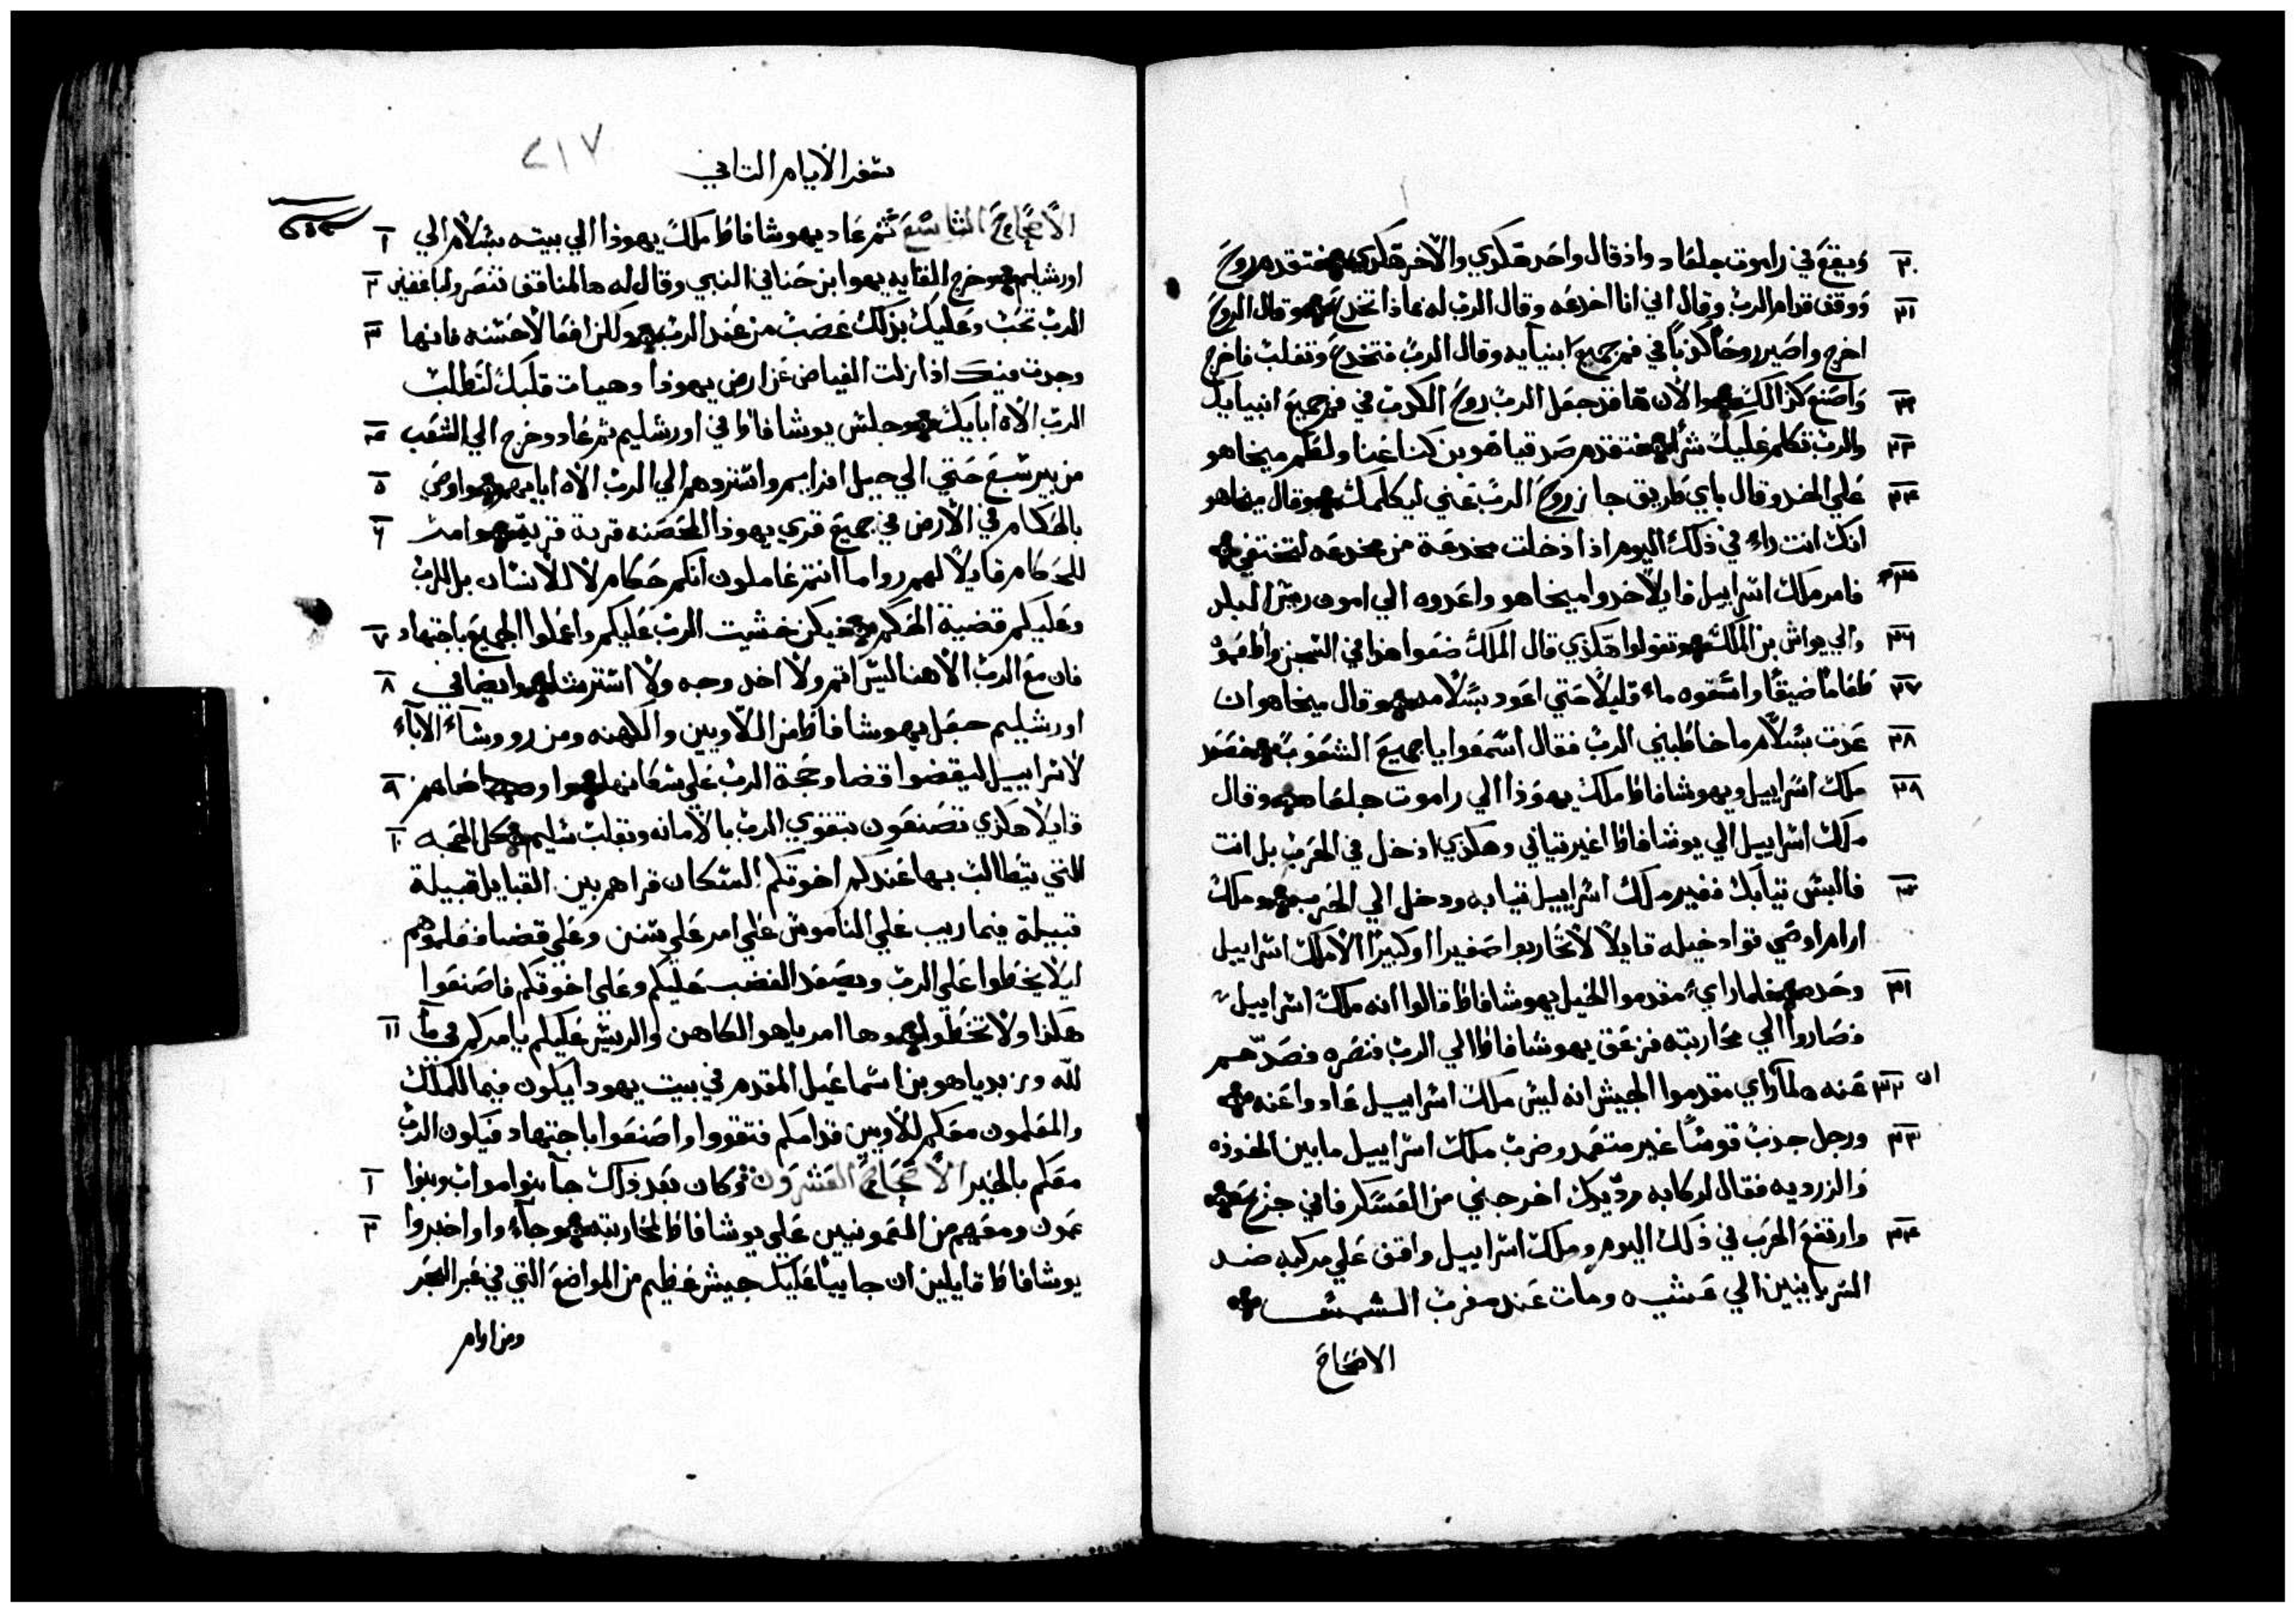 ٢٠ ويقع في راموت جلعاد واذ قال واحد هكذي والاخر هكذي فتقدم روح
٢١ ووقف قدام الرب وقال اني انا اخدعه وقال الرب له بماذا تخدع وقال الروح
اخرج واصير روحًا كذبًا في فم جميع انبيايه وقال الرب فتخدع وتغلب فاخرج
٢٢ واصنع كذالك والان ها قد جعل الرب روح الكدب في فم جميع انبيايك
٢٣ والرب تكلم عليك شرًا فتقدم صدقيا هو بن كنعنا ولطم ميخاهو
٢٤ علي الخد وقال باي طريق جاز روح الرب عني ليكلمك وقال ميخاهو
انك انت راء في ذلك اليوم اذا دخلت مخدعة من مخدعه لتختفي
٢٥ فامر ملك اسراييل قايلًا خدوا ميخاهو واعدوه الي امون ريس البلد
٢٦ والي يواش بن الملك وتقولوا هكذي قال الملك ضعوا هذا في السجن واطعموه
٢٧ طعامًا ضيقًا واسقوه ماء قليلًا حتي اعود بسلامه وقال ميخاهو ان
٢٨ عدت بسلام ما خاطبني الرب فقال اسمعوا يا جميع الشعوب فصعد
٢٨ ملك اسراييل ويهوشافاط ملك يهوذا الي راموت جلعاد وقال
ملك اسراييل الي يوشافاط اغير تيابي وهكذي ادخل في الحرب بل انت
٣٠ فالبس تيابك فغير ملك اسراييل تيابه ودخل الي الحرب وملك
ارام اوصي قواد خيله قايلًا لا تحاربوا صغيرا او كبيرًا الا ملك اسراييل
٣١ وحده فلما راي مقدموا الخيل يهوشافاط قالوا انه ملك اسراييل
فصاروا الي محاربته فزعق يهوشافاط الي الرب فنصره فصدهم
٣٢ عنه ولما راي مقدموا الجيش انه ليس ملك اسراييل عادوا عنه
٣٣ ورجل جذب قوسًا غير متعمد وضرب ملك اسراييل ما بين الخوذه
والزرديه فقال لركابه رد يدك اخرجني من العسكر فاني جرح
٣٤ وارتفع الحرب في ذلك اليوم وملك اسراييل واقف علي مركبه ضد
السريانيين الي عشيه ومات عند مغرب الشمس
الاصحاح
٢١٧
سفر الايام التاني
الاصحاح التاسع عشر ثم عاد يهوشافاط ملك يهوذا الي بيته بسلام الي ١
اورشليم وخرج القايه يهوا بن حناني النبي وقال له ها المنافق تنصر ولباغضين ٢
الرب تحب وعليك بذلك غضب من عند الرب ولكن افعال حسنه فانها ٣
وجدت فيك اذا زلت الغياض عن ارض يهوذا وهيات قلبك لتطلب
الرب الاه ابايك وجلس يوشافاط في اورشليم ثم عاد وخرج الي الشعب ٤
من بير شبع حتي الي جبل افرايم واستردهم الي الرب الاه ابايهم واوصي ٥
بالحكام في الارض في جميع قري يهوذا المحصنه قرية قرية وامر ٦
للحكام قايلًا لهم روا ما انتم عاملون انكم حكام لا للانسان بل للرب
وعليكم قضية الحكم فيكن خشيت الرب عليكم واعملوا الجميع باجتهاد ٧
فان مع الرب الاهنا ليس اتم ولا اخد وجه ولا استرشا وايضا في ٨
اورشليم جعل يهوشافاط من اللاويين والكهنه ومن رووساء الاباء
لاسراييل ليقضوا قضا وحجة الرب علي سكانها واوصاهم ٩
قايلًا هكذي تصنعون بتقوي الرب بالامانه وبقلب سليم كل الحجه ١٠
التي يتطالب بها عندكم اخوتكم السكان قراهم بين القبايل قبيلة
قبيلة فيما ريب علي الناموس علي امر علي سنن وعلي قضا فعلموهم
ليلا يخطوا علي الرب ويصعد الغضب عليكم وعلي اخوتكم فاصنعوا
هكذا ولا تخطوا وها امرياهو الكاهن والريس عليكم يامركم في ما ١١
لله وزبدياهو بن اسماعيل المقدم في بيت يهودا يكون فيما للملك
والمعلمون معكم للاويين قدامكم فتقووا واصنعوا باجتهاد فيكون الرب
معكم بالخير الاصحاح العشرون وكان بعد ذلك جا بنوا مواب وبنوا ١
عمون ومعهم من العمونيين علي يوشافاط لمحاربته وجاءوا واخبروا ٢
يوشافاط قايلين ان جايبًا عليك جيش عظيم من المواضع التي في عبر البحر
ومن ارام